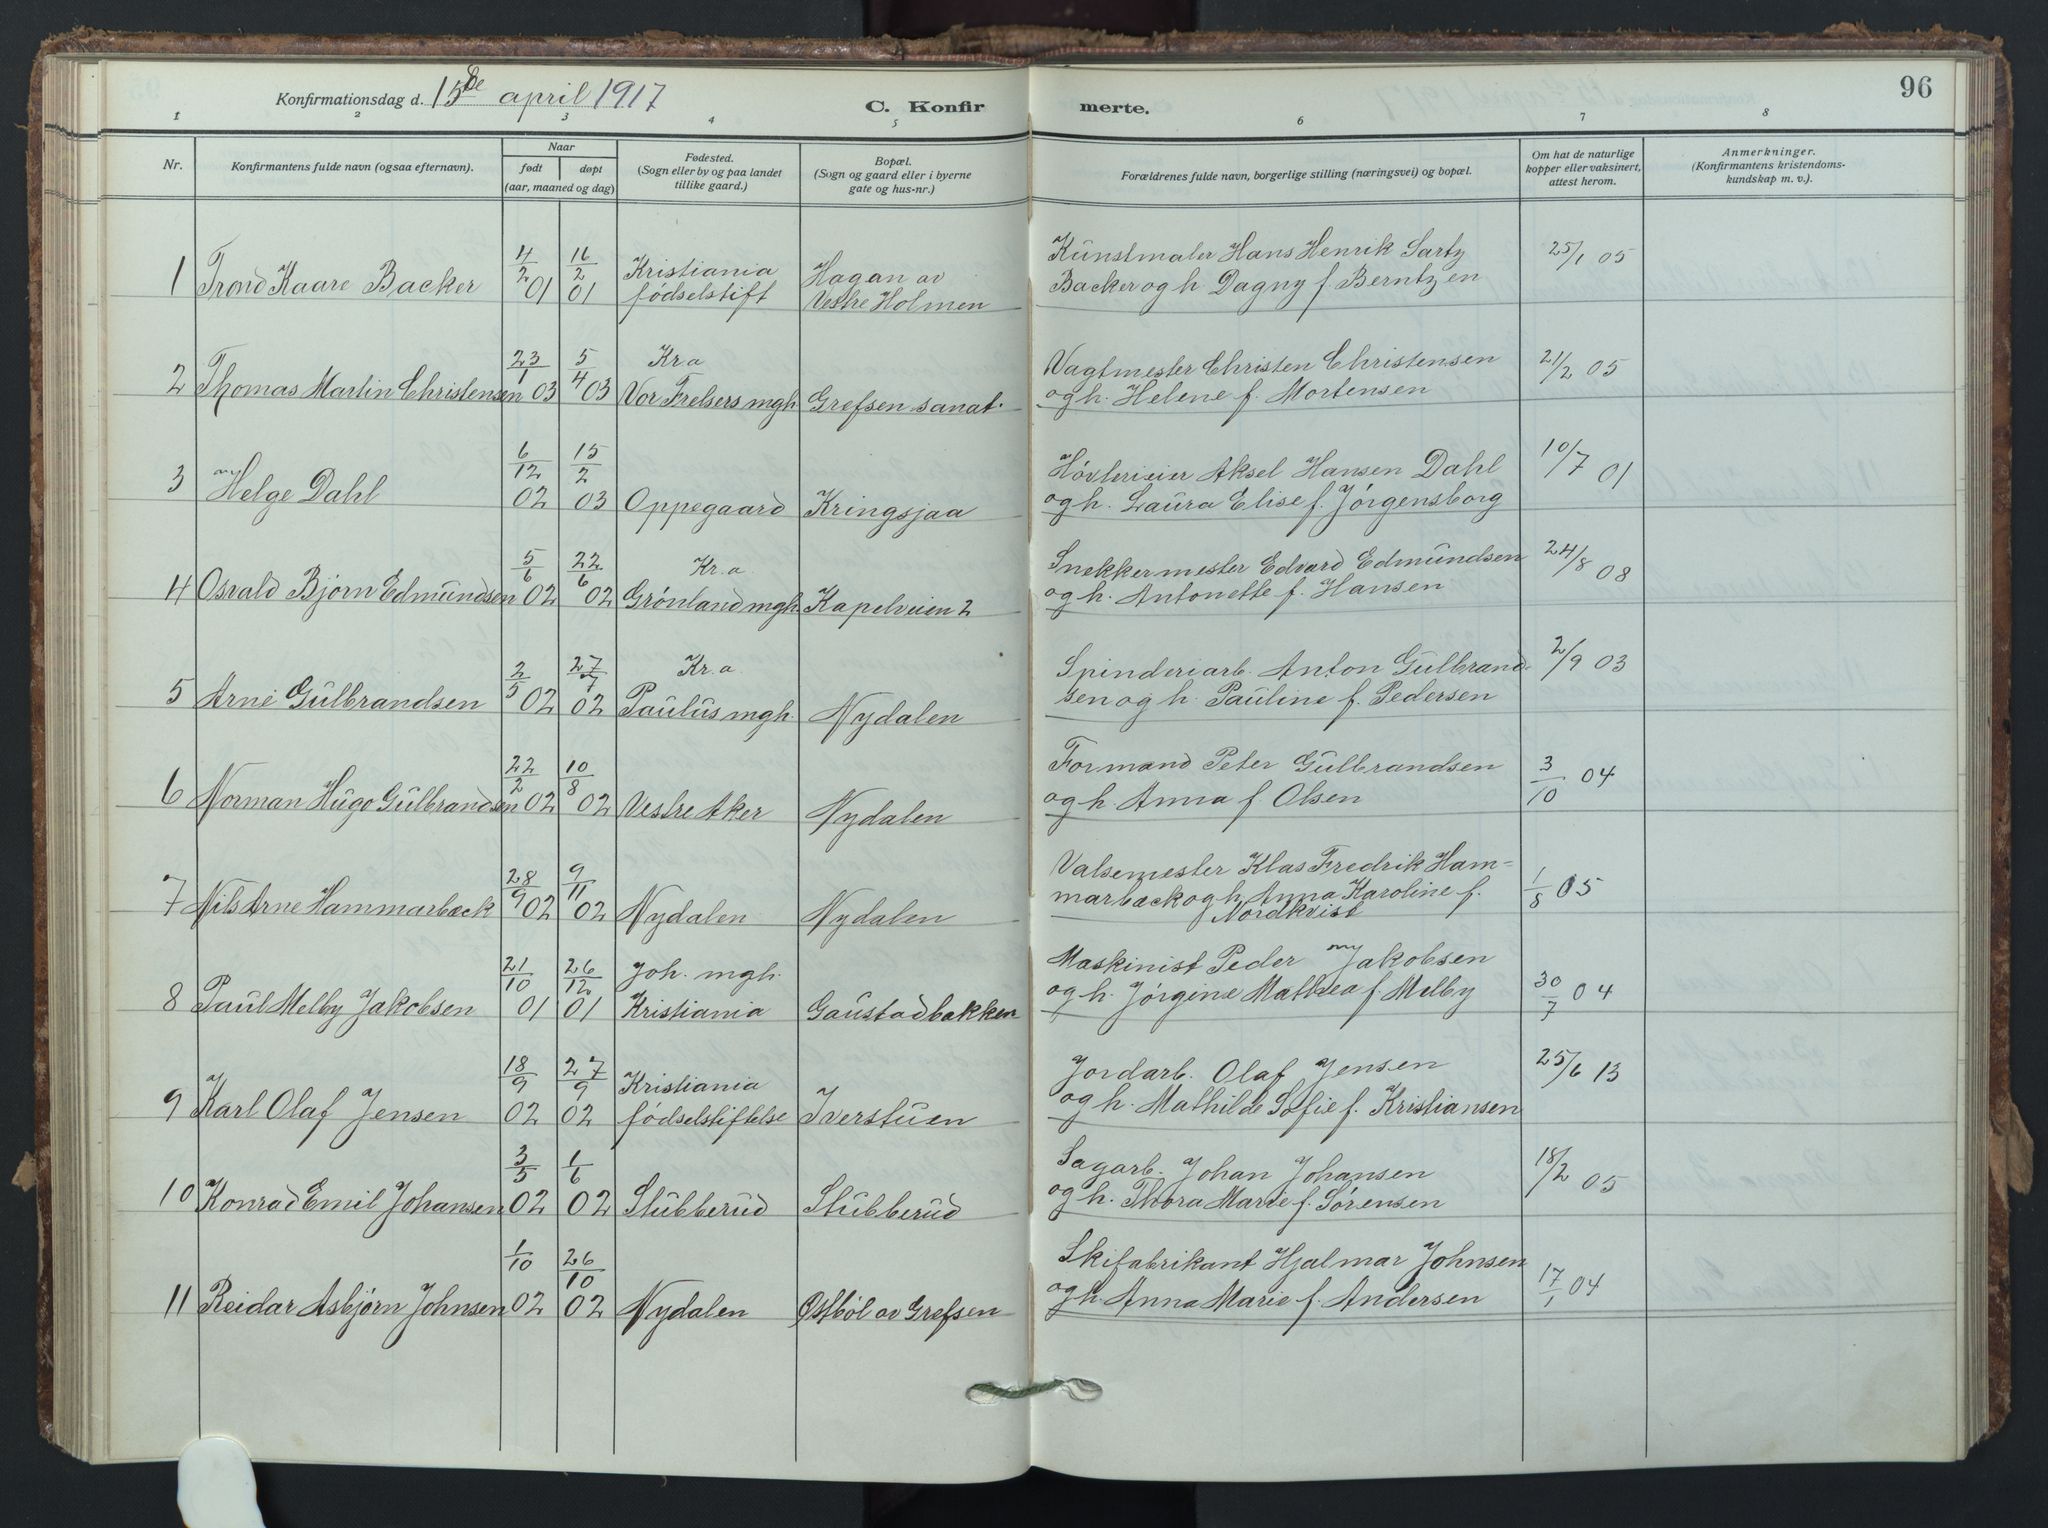 96
Konfirmationsdag d. 15de april 1917
C. Konfirmerte.
1 2 3 4 5 6 7 8
Nr.
Konfirmantens fulde navn (ogsaa efternavn).
Naar
født døpt
(aar, maaned og dag)
Fødested.
(Sogn eller by og paa landet
tillike gaard.)
Bopæl.
(Sogn og gaard eller i byerne
gate og hus-nr.)
Forældrenes fulde navn, borgerlige stilling (næringsvei) og bopæl.
Om hat de naturlige
kopper eller vaksinert,
attest herom.
Anmerkninger.
(Konfirmantens kristendoms-
kundskap m. v.)
4/2 16/2 Kristiania Hagan av Kunstmaler Hans Henrik Sartz 25/1 05
1 Trond Kaare Backer 01 01 fødselstift Vestre Holmen Backer og h. Dagny f. Berntzen
23/1 5/4 Kr.a Vagtmester Christen Christensen 21/2 05
2 Thomas Martin Christensen 03 03 Vor Frelsers mgh. Grefsen sanat. og h. Helene f. Mortensen
6/12 15/2 Høvlerieier Aksel Hansen Dahl 10/7 01
3 Helge Dahl 02 03 Oppegaard Kringsjaa og h. Laura Elise f. Jørgensborg
5/6 22/6 Kr.a. Snekkermester Edvard Edmundsen 24/8 08
4 Osvald Bjørn Edmundsen 02 02 Grønland mgh. Kapelveien 2 og h. Antonette f. Hansen
2/5 27/7 Kr.a Spinderiarb. Anton Gulbrand- 2/9 03
5 Arne Gulbrandsen 02 02 Paulus mgh. Nydalen sen og h. Pauline f. Pedersen
22/2 10/8 Formand Peter Gulbrandsen 3/10 04
6 Norman Hugo Gulbrandsen 02 02 Vestre Aker Nydalen og h. Anna f. Olsen
28/9 9/11 Valsemester Klas Fredrik Ham=
7 Nils Arne Hammarbæck 02 02 Nydalen Nydalen marbæck og h. Anna Karoline f. 1/8 05
Nordkvist
21/10 26/12 Joh. mgh. Maskinist Peder Jakobsen
8 Paul Melby Jakobsen 01 01 Kristiania Gaustadbakken og h. Jørgine Mathea f. Melby 30/7 04
18/9 27/9 Kristiania Jordarb. Olaf Jensen 25/6 13
9 Karl Olaf Jensen 02 02 fødselstiftelse Iverstuen og h. Mathilde Sofie f. Kristiansen
3/5 1/6 Sagarb. Johan Johansen 18/2 05
10 Konrad Emil Johansen 02 02 Stubberud Stubberud og h. Thora Marie f. Sørensen
1/10 26/10 Skifabrikant Hjalmar Johnsen
11 Reidar Asbjørn Johnsen 02 02 Nydalen Østbøl av Grefsen og h. Anna Marie f. Andersen 17/1 04